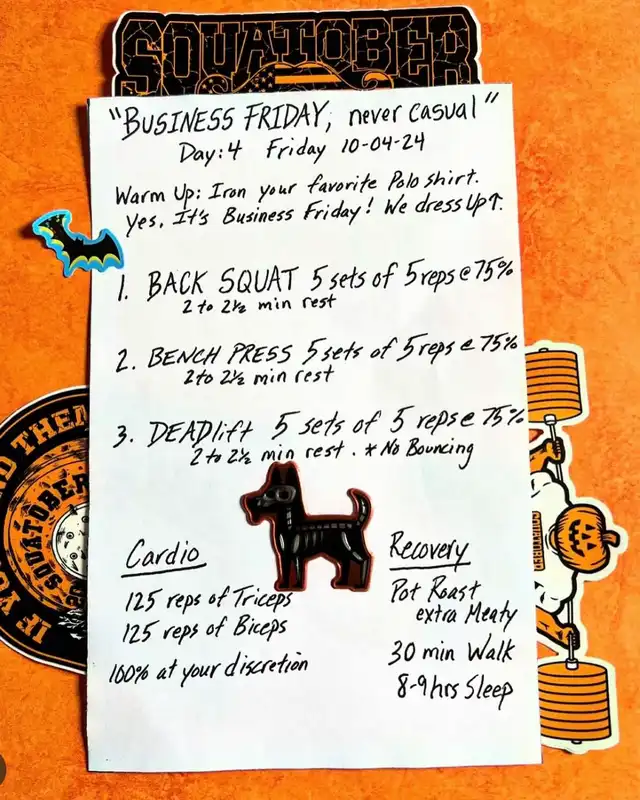 SQUATOBER
"BUSINESS FRIDAY, never casual"
Day:4 Friday 10-04-24
Warm Up: Iron your favorite Polo shirt.
Yes, It's Business Friday! We dress Up↑.
1. BACK SQUAT 5 sets of 5 reps @ 75%
2 to 2½ min rest
2. BENCH PRESS 5 sets of 5 reps @ 75%
2 to 2½ min rest
3. DEADlift 5 sets of 5 reps @ 75%
2 to 2½ min rest. * No Bouncing
Cardio
125 reps of Triceps
125 reps of Biceps
100% at your discretion
Recovery
Pot Roast
extra Meaty
30 min Walk
8-9 hrs Sleep
IF YOU
THE
SQUATOBER